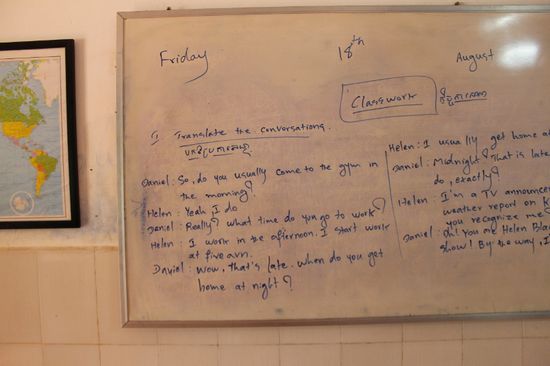 Friday 18th August
Classwork
I Translate the conversations.
Daniel: So, do you usually come to the gym in
the morning?
Helen: Yeah, I do
Daniel: Really? What time do you go to work?
Helen: I work in the afternoon. I start work
at five
Daniel: Wow, that's late. When do you get
home at night?
Helen: I usually get home at
Daniel: Midnight? That is late
do, exactly?
Helen: I'm a TV announcer
weather report on K
you recognize me
Daniel: Oh! You are Helen Bla
show! By the way, I